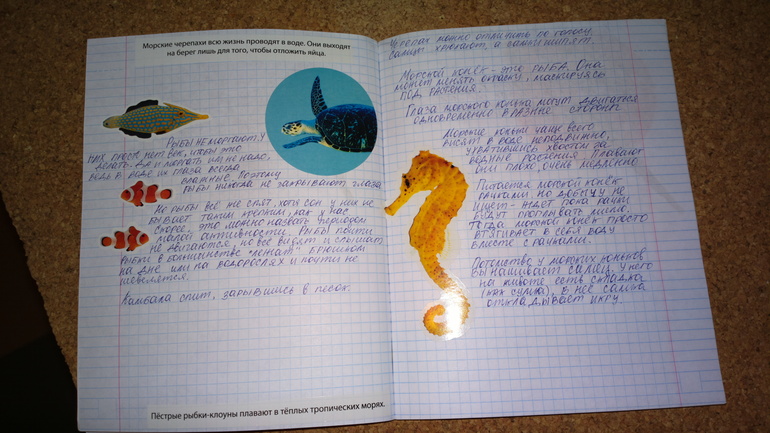 Морские черепахи всю жизнь проводят в воде. Они выходят
на берег лишь для того, чтобы отложить яйца.
Рыбы не моргают, у
них просто нет век, чтобы это
делать. Да и моргать им не надо,
ведь в воде их глаза всегда
влажные. Поэтому
рыбы никогда не закрывают глаза
Но рыбы всё же спят, хотя сон у них не
бывает таким крепким, как у нас
скорее, это можно назвать периодом
малой активности. Рыбы почти
не двигаются, но все видят и слышат
Рыбки в большинстве "лежат" брюшком
на дне или на водорослях и почти не
шевелятся.
Камбала спит, зарывшись в песок.
Пёстрые рыбки-клоуны плавают в тёплых тропических морях.
Черепах можно отличить по голосу
самцы хрюкают, а самки шипят.
Морской конёк - это рыба. Она
может менять окраску, маскируясь
под растения.
Глаза морского конька могут двигаться
одновременно в разные стороны
Морские коньки чаще всего
висят в воде неподвижно,
ухватившись хвостом за
водные растения. Плавают
они плохо, очень медленно
Питается морской конёк
рачками, но добычу не
ищет - ждёт пока рачки
будут проплывать мимо.
Тогда морской конёк просто
втягивает в себя воду
вместе с рачками.
Потомство у морских коньков
вынашивает самец. У него
на животе есть складка
(как сумка). В неё самка
откладывает икру.